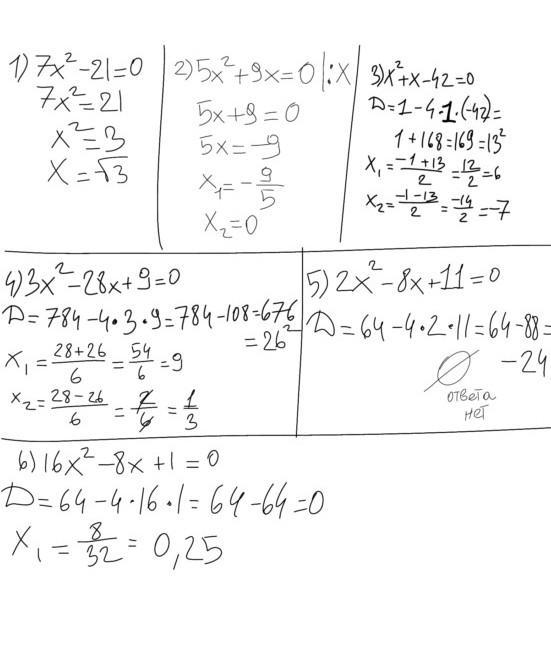 1) 7x²-21=0
7x²=21
x²=3
x=√3
2) 5x²+9x=0 |:x
5x+9=0
5x=-9
x₁=-9/5
x₂=0
3) x²+x-42=0
D=1-4·1·(-42)=
1+168=169=13²
x₁=(-1+13)/2=12/2=6
x₂=(-1-13)/2=-14/2=-7
4) 3x²-28x+9=0
D=784-4·3·9=784-108=676
=26²
x₁=(28+26)/6=54/6=9
x₂=(28-26)/6=2/6=1/3
5) 2x²-8x+11=0
D=64-4·2·11=64-88=
-24
∅
ответа
нет
6) 16x²-8x+1=0
D=64-4·16·1=64-64=0
x₁=8/32=0,25